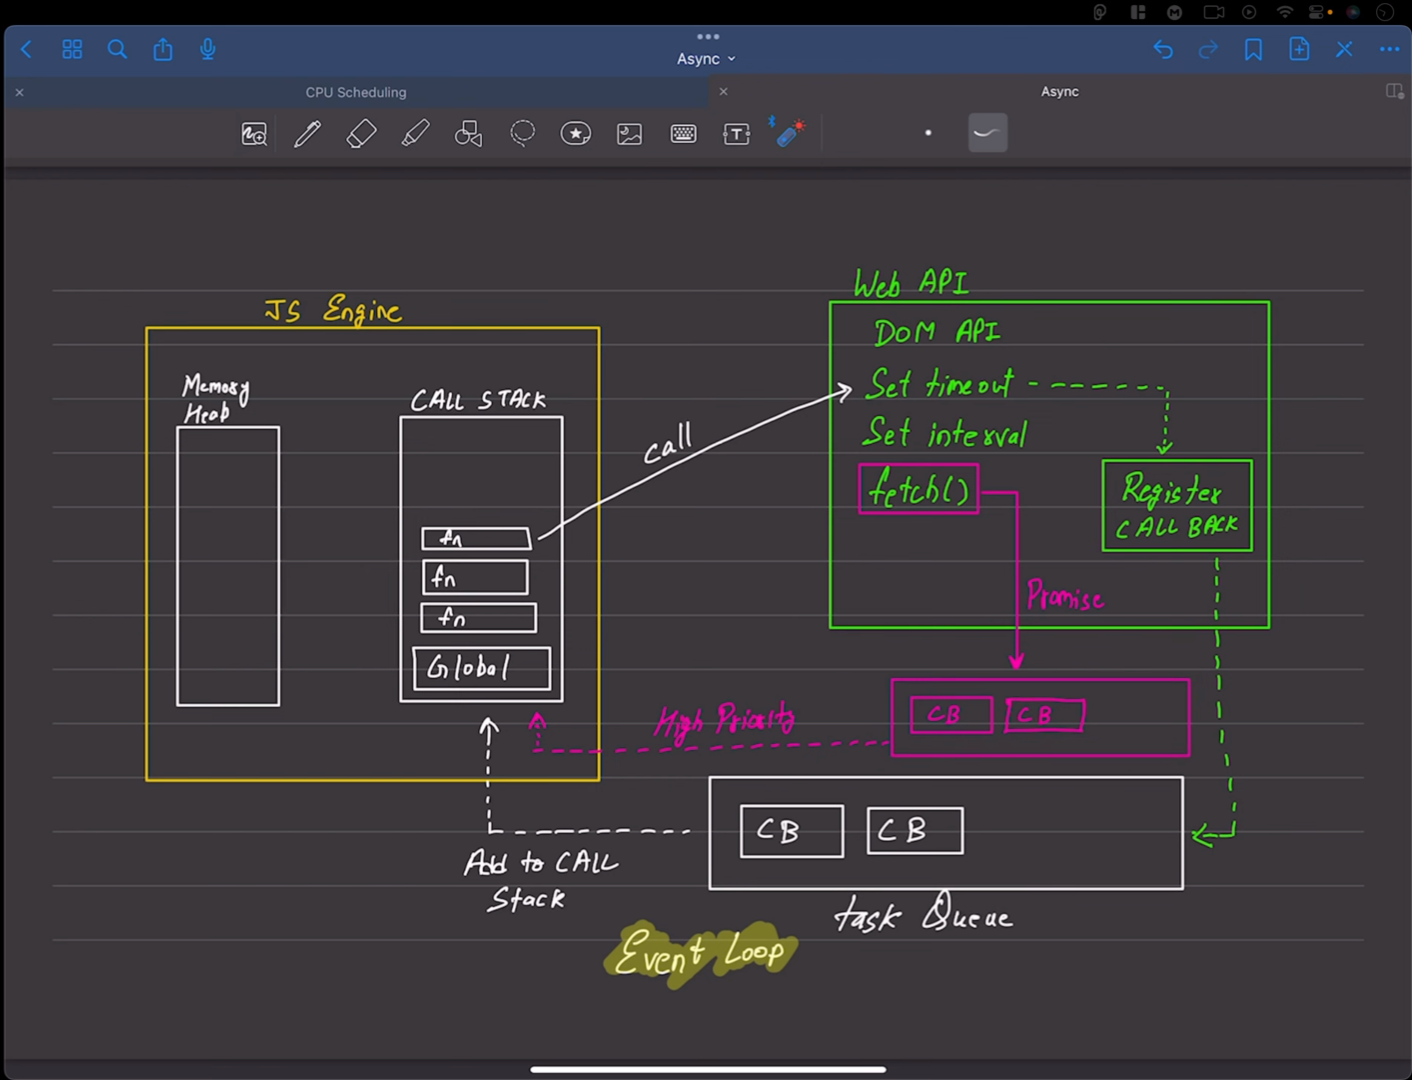 Async
CPU Scheduling
Async
T
JS Engine
Memory
Heap
CALL STACK
fn
fn
fn
Global
call
Web API
DOM API
Set timeout
Set interval
fetch()
Register
CALL BACK
Promise
High Priority
CB CB
CB CB
Add to CALL
Stack
task Queue
Event Loop